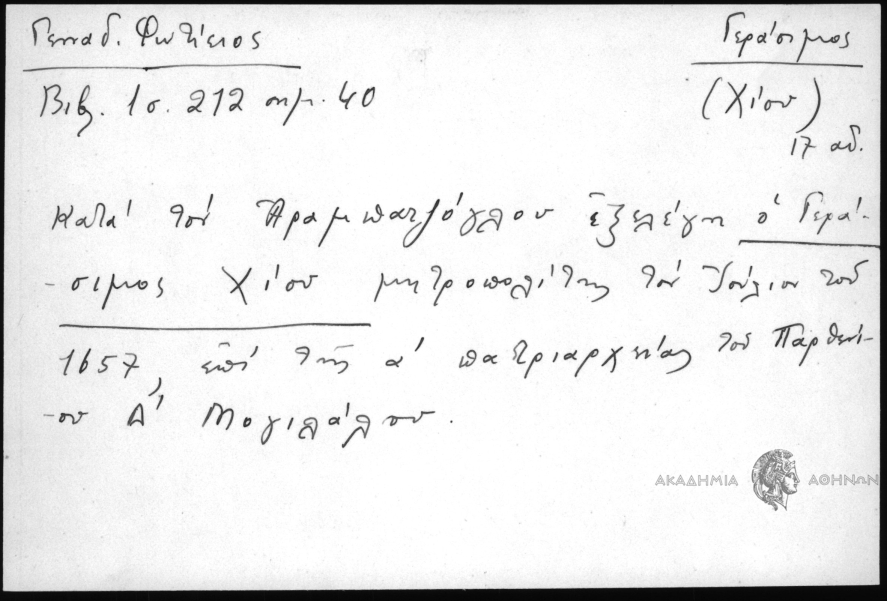 Γενναδ. Φωτίειος
Γεράσιμος
Βιβλ. 1 σ. 212 σημ. 40
(Χίου)
17 αι.
Κατά τόν Ἀραμπατζόγλου ἐξελέγη ὁ Γερά-
-σιμος Χίου μητροπολίτης τόν Ἰούλιον τοῦ
1657, ἐπί τῆς α' πατριαρχείας τοῦ Παρθενί-
-ου Δ' Μογιλάλου.
ΑΚΑΔΗΜΙΑ ΑΘΗΝΩΝ